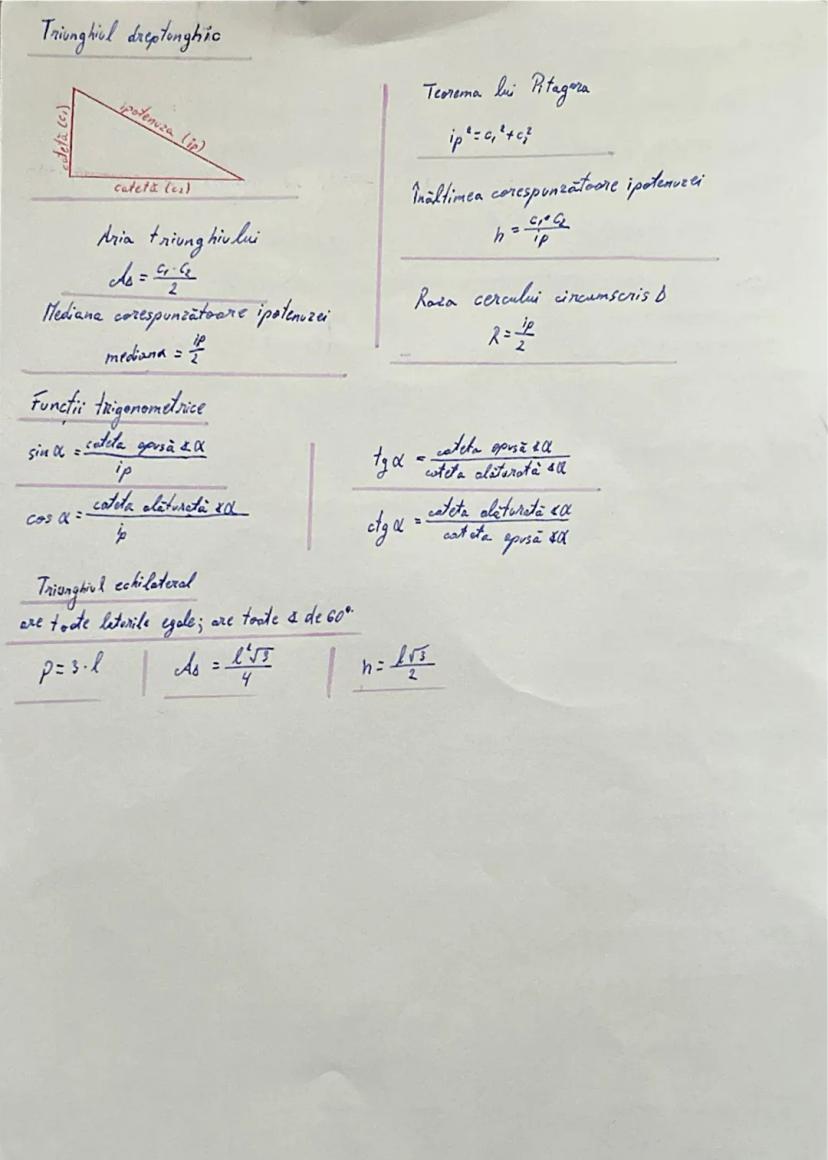 Triunghiul dreptunghic
catetă (c₁)
ipotenuza (ip)
catetă (c₂)
Aria triunghiului
A∆ = c₁·c₂/2
Mediana corespunzătoare ipotenuzei
mediana = ip/2
Teorema lui Pitagora
ip² = c₁² + c₂²
Înălțimea corespunzătoare ipotenuzei
h = c₁·c₂/ip
Raza cercului circumscris ∆
R = ip/2
Funcții trigonometrice
sin α = cateta opusă ∢α/ip
cos α = cateta alăturată ∢α/ip
tg α = cateta opusă ∢α/cateta alăturată ∢α
ctg α = cateta alăturată ∢α/cateta opusă ∢α
Triunghiul echilateral
are toate laturile egale; are toate ∢ de 60°
P = 3·l
A∆ = l²√3/4
h = l√3/2